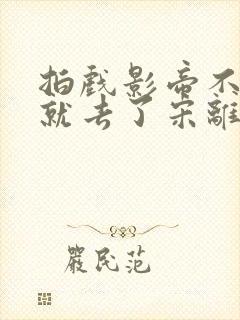 拍戲影帝不
就去了宋離
嚴民范